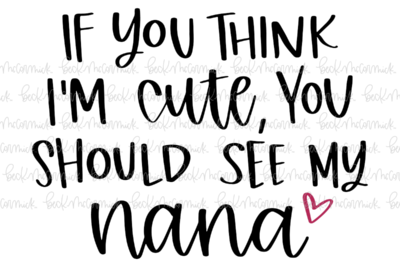 IF YOU THINK
I'M cute, YOU
SHOULD SEE MY
nana